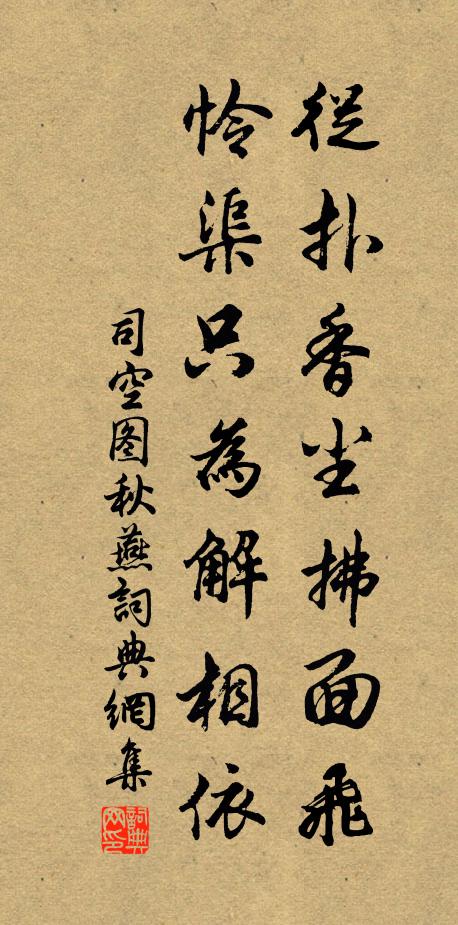 從扑香尘拂面飛
怜渠只為解相依
司空图秋燕詞典網集
詞典
网印